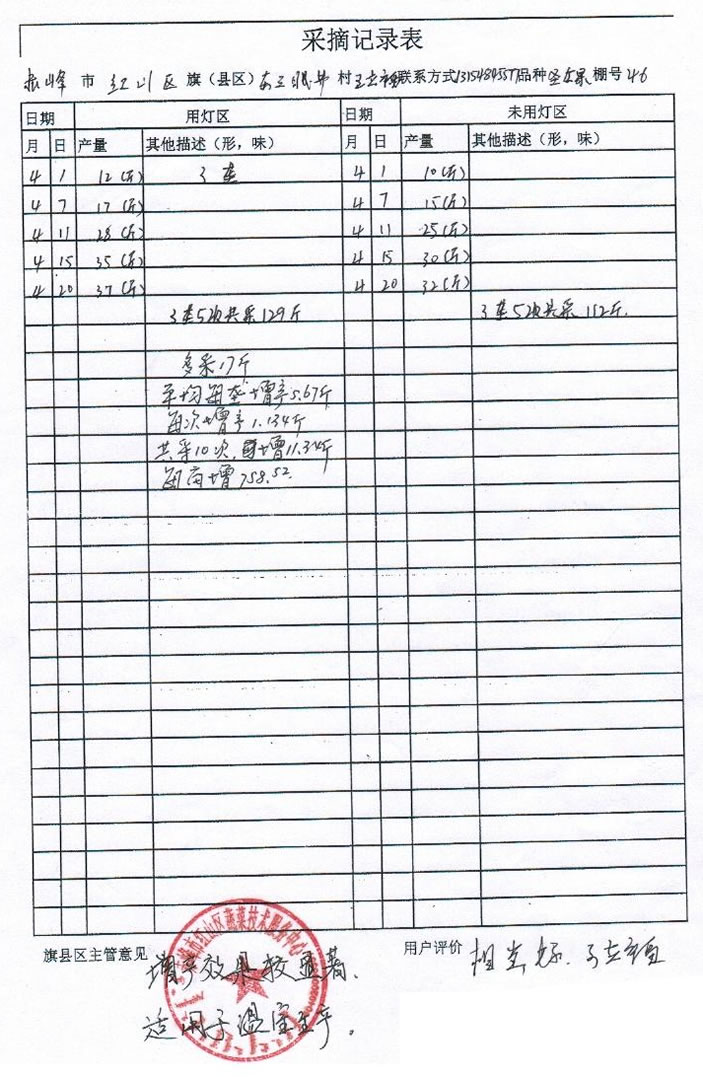 采摘记录表
赤峰 市 红山区 旗（县区） 村 联系方式 品种 圣女果 棚号 46
日期 用灯区 日期 未用灯区
月 日 产量 其他描述（形，味） 月 日 产量 其他描述（形，味）
4 1 12(斤) 3垄 4 1 10(斤)
4 7 17(斤) 4 7 15(斤)
4 11 28(斤) 4 11 25(斤)
4 15 35(斤) 4 15 30(斤)
4 20 37(斤) 4 20 32(斤)
3垄5次共采129斤 3垄5次共采112斤.
多采17斤
平均每垄增产5.67斤
每次增产1.134斤
共采10次,增11.34斤
每亩增758.52.
旗县区主管意见 增产效果较显著. 用户评价 相当好.
适用于温室生产。
红山区蔬菜技术服务中心